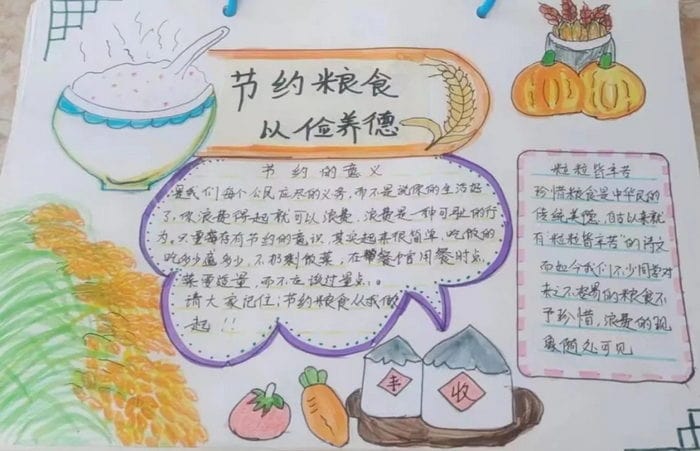 节约粮食
以俭养德
节约的意义
是我们每个公民应尽的义务,而不是说你的生活好
了,你浪费得起就可以浪费,浪费是一种可耻的行
为。只要存有节约的意识,其实起来很简单,吃饭时
吃多少盛多少,不扔剩饭菜,在餐馆用餐时点
菜要适量,而不应该过量点。
请大家记住:节约粮食从我们做
起!!
粒粒皆辛苦
珍惜粮食是中华民的
传统美德,自古以来就
有"粒粒皆辛苦"的诗文
而如今我们不少同学对
来之不易的粮食不
予珍惜,浪费的现
象随处可见
丰 收